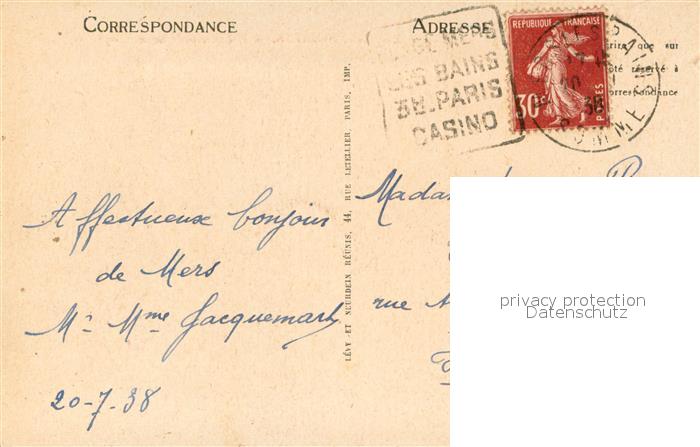 CORRESPONDANCE
ADRESSE
MERS
LES BAINS
3H_PARIS
CASINO
REPUBLIQUE FRANÇAISE
30
POSTES
38
SOMME
que sur
réservé à
correspondance
LÉVY ET NEURDEIN RÉUNIS, 44, RUE LETELLIER, PARIS, IMP.
Affectueux bonjour
de Mers
Mr Mme Jacquemart
20-7-38
Madame
rue
privacy protection
Datenschutz